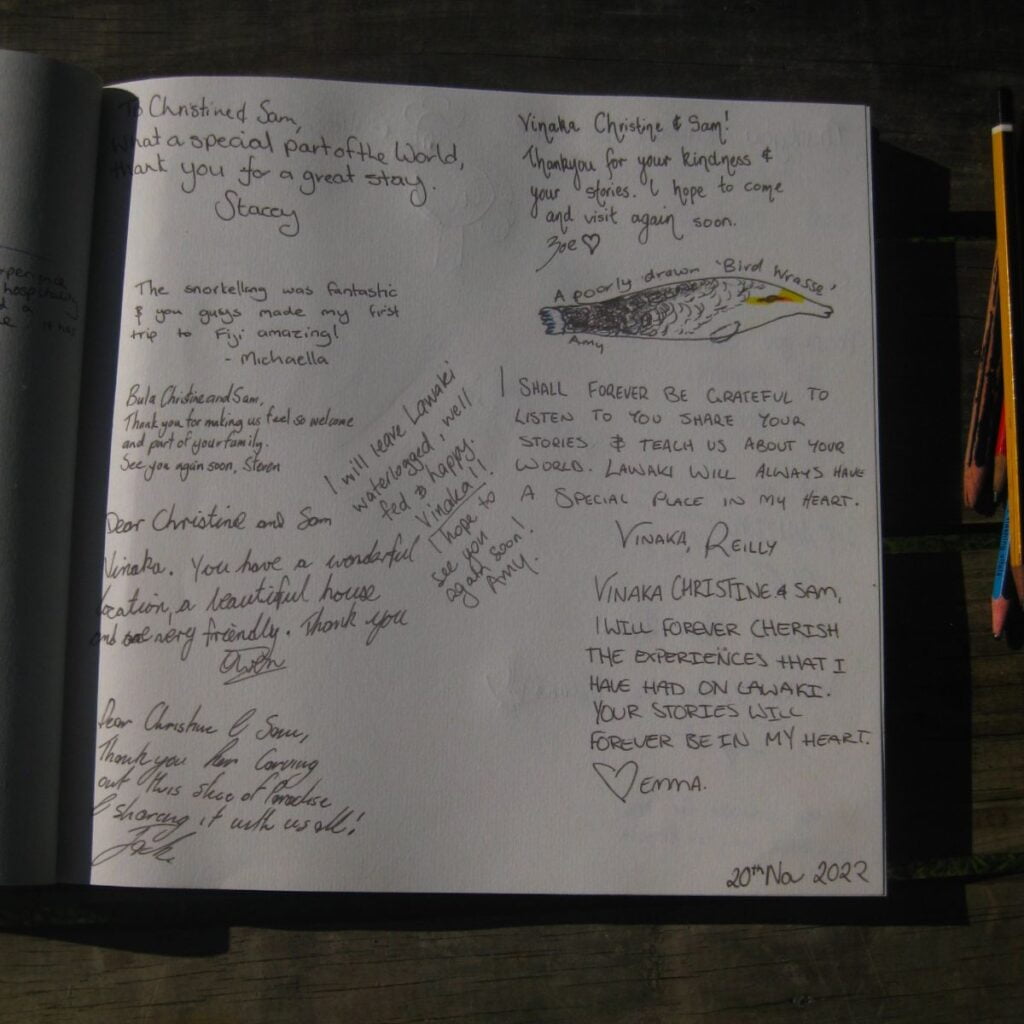 To Christine & Sam,
What a special part of the World,
thank you for a great stay.
Stacey
The snorkelling was fantastic
& you guys made my first
trip to Fiji amazing!
- Michaella
Bula Christine and Sam,
Thank you for making us feel so welcome
and part of your family.
See you again soon, Steven
I will leave Lawaki
waterlogged, well
fed & happy.
Vinaka!!
I hope to
see you
again soon!
Amy.
Dear Christine and Sam
Vinaka. You have a wonderful
location, a beautiful house
and very friendly. Thank you
Owen
Dear Christine & Sam,
Thank you for Carving
out this slice of Paradise
& sharing it with us all!
Vinaka Christine & Sam!
Thankyou for your kindness &
your stories. I hope to come
and visit again soon.
Zoe ♡
A poorly drawn 'Bird Wrasse'
Amy
I SHALL FOREVER BE GRATEFUL TO
LISTEN TO YOU SHARE YOUR
STORIES & TEACH US ABOUT YOUR
WORLD. LAWAKI WILL ALWAYS HAVE
A SPECIAL PLACE IN MY HEART.
VINAKA, REILLY
VINAKA CHRISTINE & SAM,
I WILL FOREVER CHERISH
THE EXPERIENCES THAT I
HAVE HAD ON LAWAKI.
YOUR STORIES WILL
FOREVER BE IN MY HEART.
♡ EMMA.
20th Nov 2022